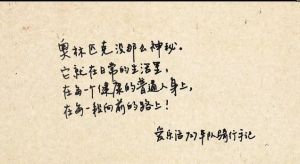 奥林匹克没那么神秘。
它就在日常的生活里,
在每一个健康的普通人身上,
在每一段向前的路上!
爱乐活707车队骑行手记